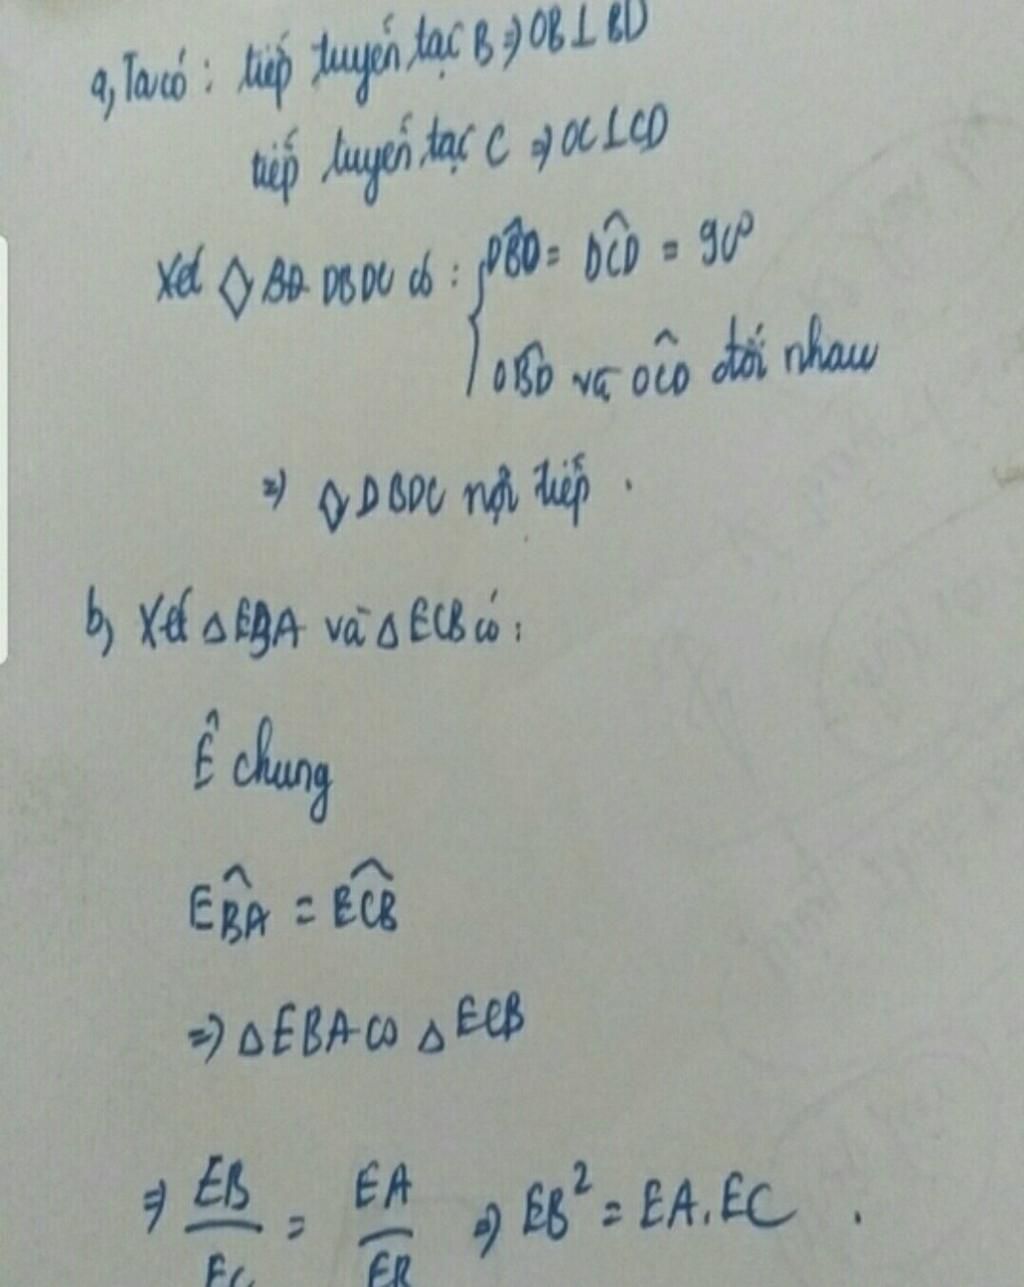 a, Ta có : tiếp tuyến tại B ⇒ OB ⊥ BD
tiếp tuyến tại C ⇒ OC ⊥ CD
Xét ◇ OBDC có : { OBD̂ = OĈD = 90°
OB̂D và OĈD đối nhau
⇒ ◇ OBDC nội tiếp .
b, Xét △ EBA và △ ECB có :
Ê chung
EB̂A = EĈB
⇒ △ EBA ∽ △ ECB
⇒ EB/EC = EA/EB ⇒ EB² = EA . EC .